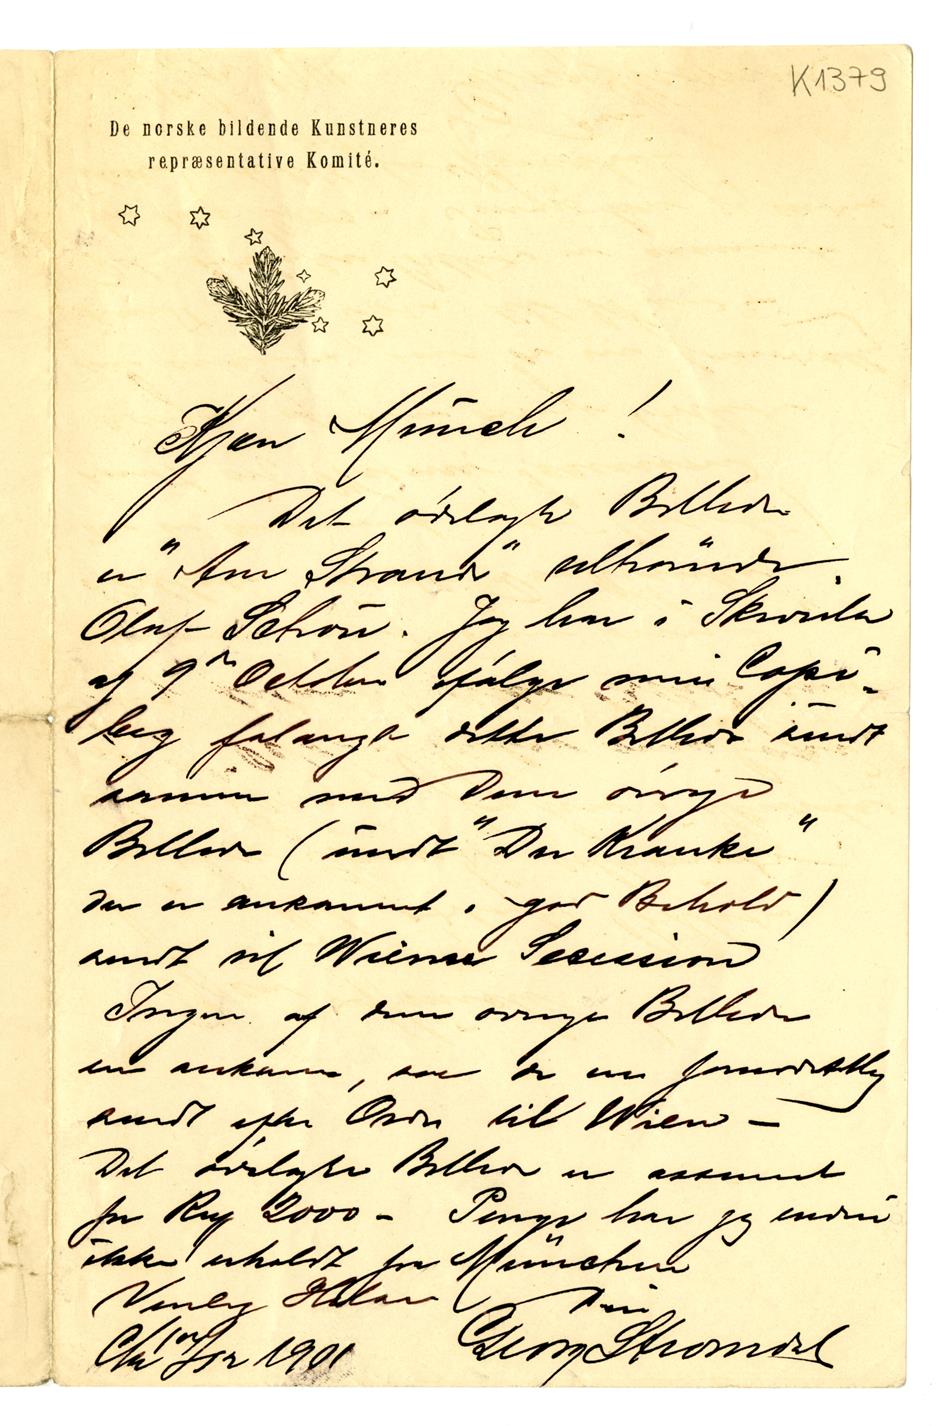 K1379
De norske bildende Kunstneres
repræsentative Komité.
Kjære Münch!
Det ödelagte Billede
er "Am Strand" tilhörende
Olaf Schou. Jeg har i Skrivelse
af 9de October ifølge min Copi-
bog forlangt dette Billede sendt
sammen med Dine övrige
Billeder (undt "Der Kranke"
der er ankommet i god Behold)
sendt til Wiener Secession
Ingen af dine övrige Billeder
er ankomne, saa de er formodentlig
sendt efter Ordre til Wien –
Det ödelagte Billede er assureret
for 2000 – Penge har jeg endnu
ikke erholdt fra München
Venlig Hilsen
Din
Chra 1901 Georg Strømdal